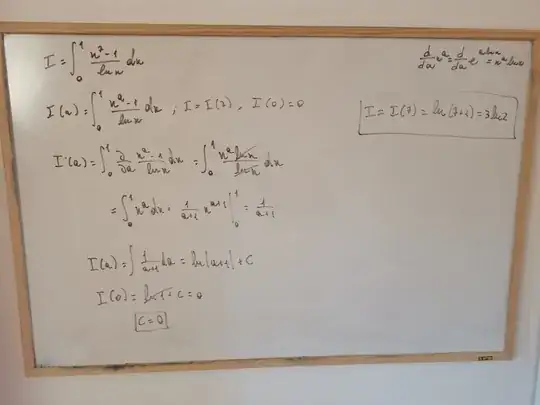 I = ∫₀¹ (x⁷-1)/(ln x) dx
d/da xᵃ = d/da e^(a ln x) = xᵃ ln x
I(a) = ∫₀¹ (xᵃ-1)/(ln x) dx ; I = I(7) , I(0) = 0
I = I(7) = ln(7+1) = 3 ln 2
I'(a) = ∫₀¹ ∂/∂a (xᵃ-1)/(ln x) dx = ∫₀¹ (xᵃ ln x)/(ln x) dx
= ∫₀¹ xᵃ dx = 1/(a+1) xᵃ⁺¹ |₀¹ = 1/(a+1)
I(a) = ∫ 1/(a+1) da = ln|a+1| + C
I(0) = ln 1 + C = 0
C = 0